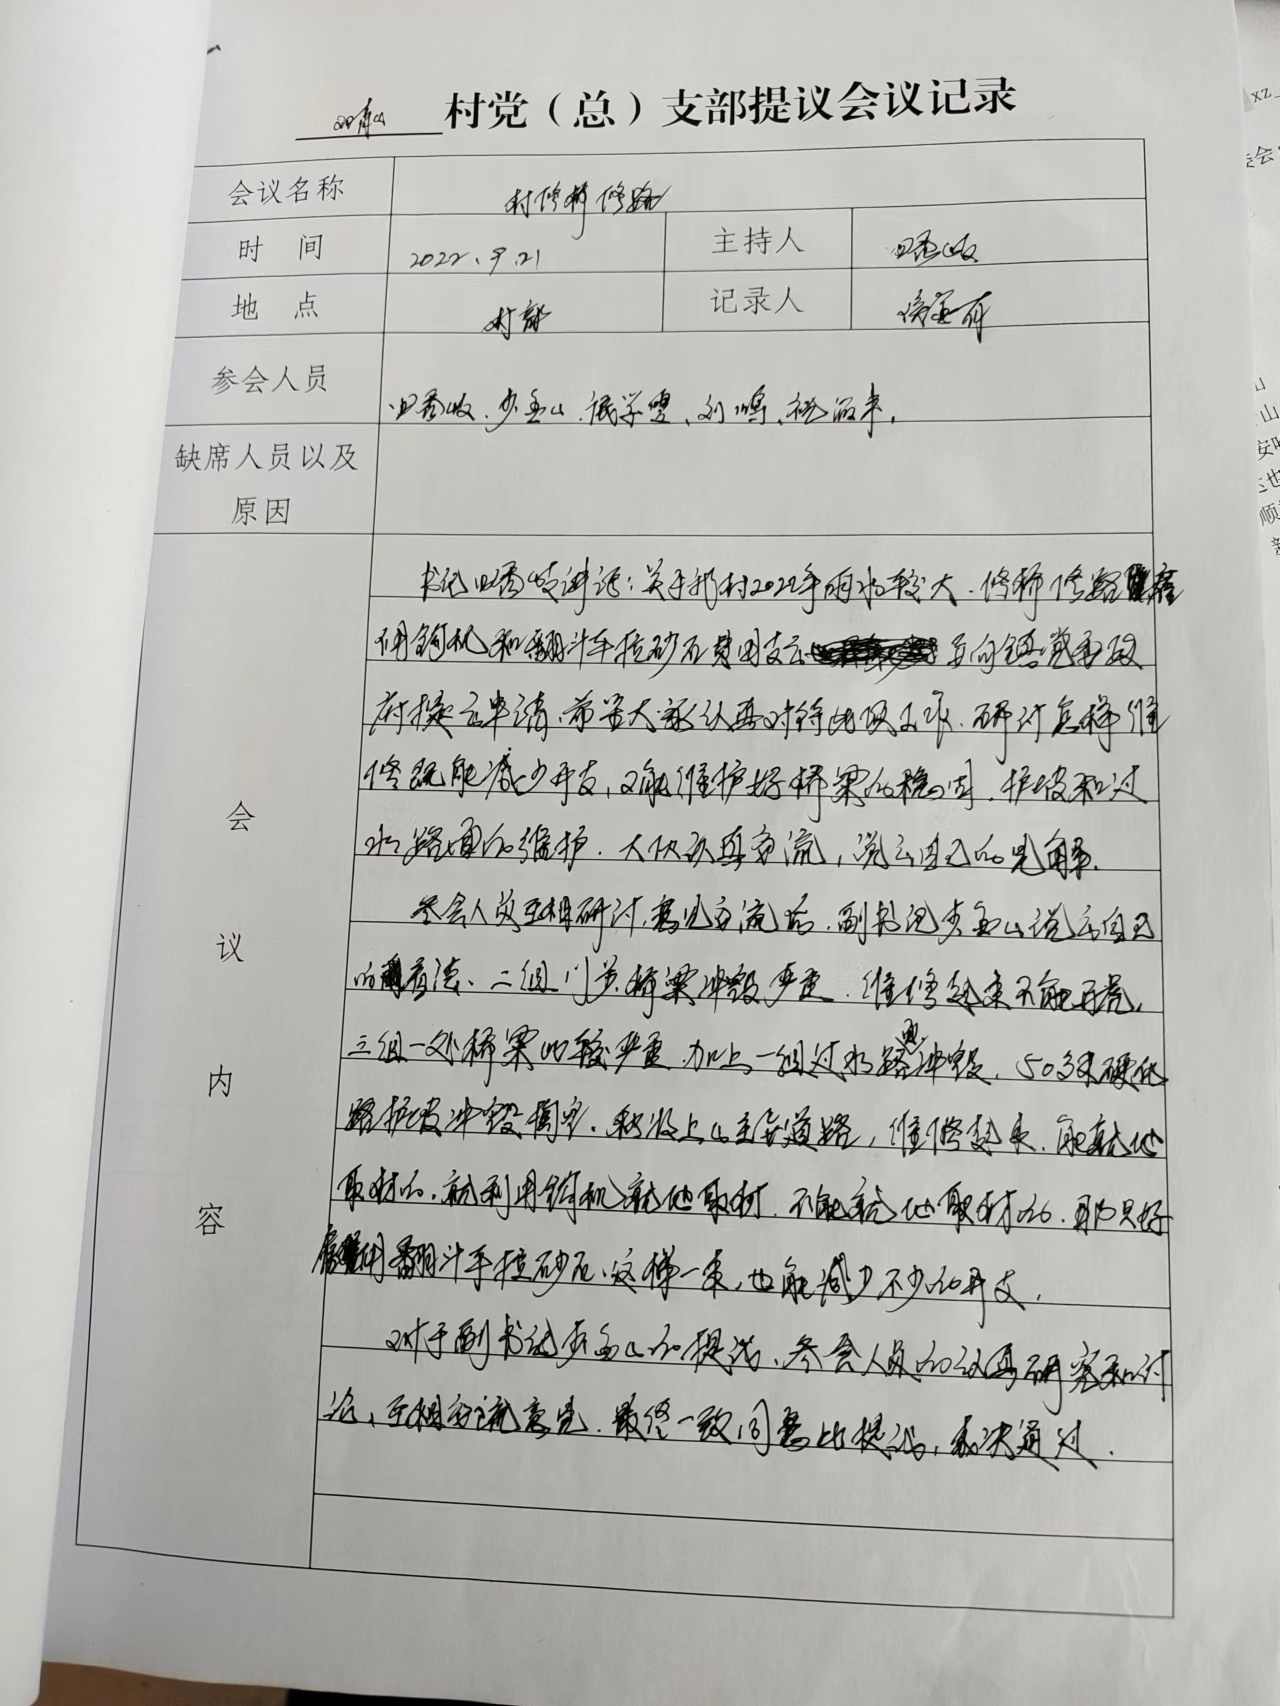 村党（总）支部提议会议记录
会议名称 村修桥修路
时 间 2022.9.21 主持人
地 点 村部 记录人
参会人员 刘鸣
缺席人员以及
原因
会议内容
书记 讲话：关于我村2022年雨水较大.修桥修路雇
用钩机和翻斗车拉砂石费用支出 向镇党委政
府提出申请,希望大家认真对待此项工作.研讨怎样维
修既能减少开支,又能维护好桥梁的稳固.护坡和过
水路面的维护.大伙认真交流,说出自己的见解.
参会人员互相研讨,意见交流后.副书记 说出自己
的看法、二组 桥梁冲毁严重.维修起来不能再
三组一处桥梁比较严重.加上一组过水路面冲毁.50多米硬化
路护坡冲毁 秋收上山主要道路,维修起来.能就地
取材的.就利用钩机就地取材.不能就地取材的.那只好
雇用翻斗车拉砂石、这样一来,也能减少不少的开支.
对于副书记 的提议、参会人员的认真研究和讨
论、互相交流意见.最终一致同意此提议,表决通过.